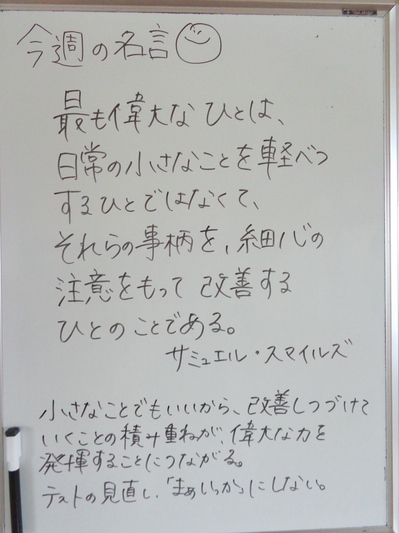 今週の名言
最も偉大なひとは、
日常の小さなことを軽べつ
するひとではなくて、
それらの事柄を、細心の
注意をもって改善する
ひとのことである。
サミュエル・スマイルズ
小さなことでもいいから、改善しつづけて
いくことの積み重ねが、偉大な力を
発揮することにつながる。
テストの見直し、「まぁいっか」にしない。